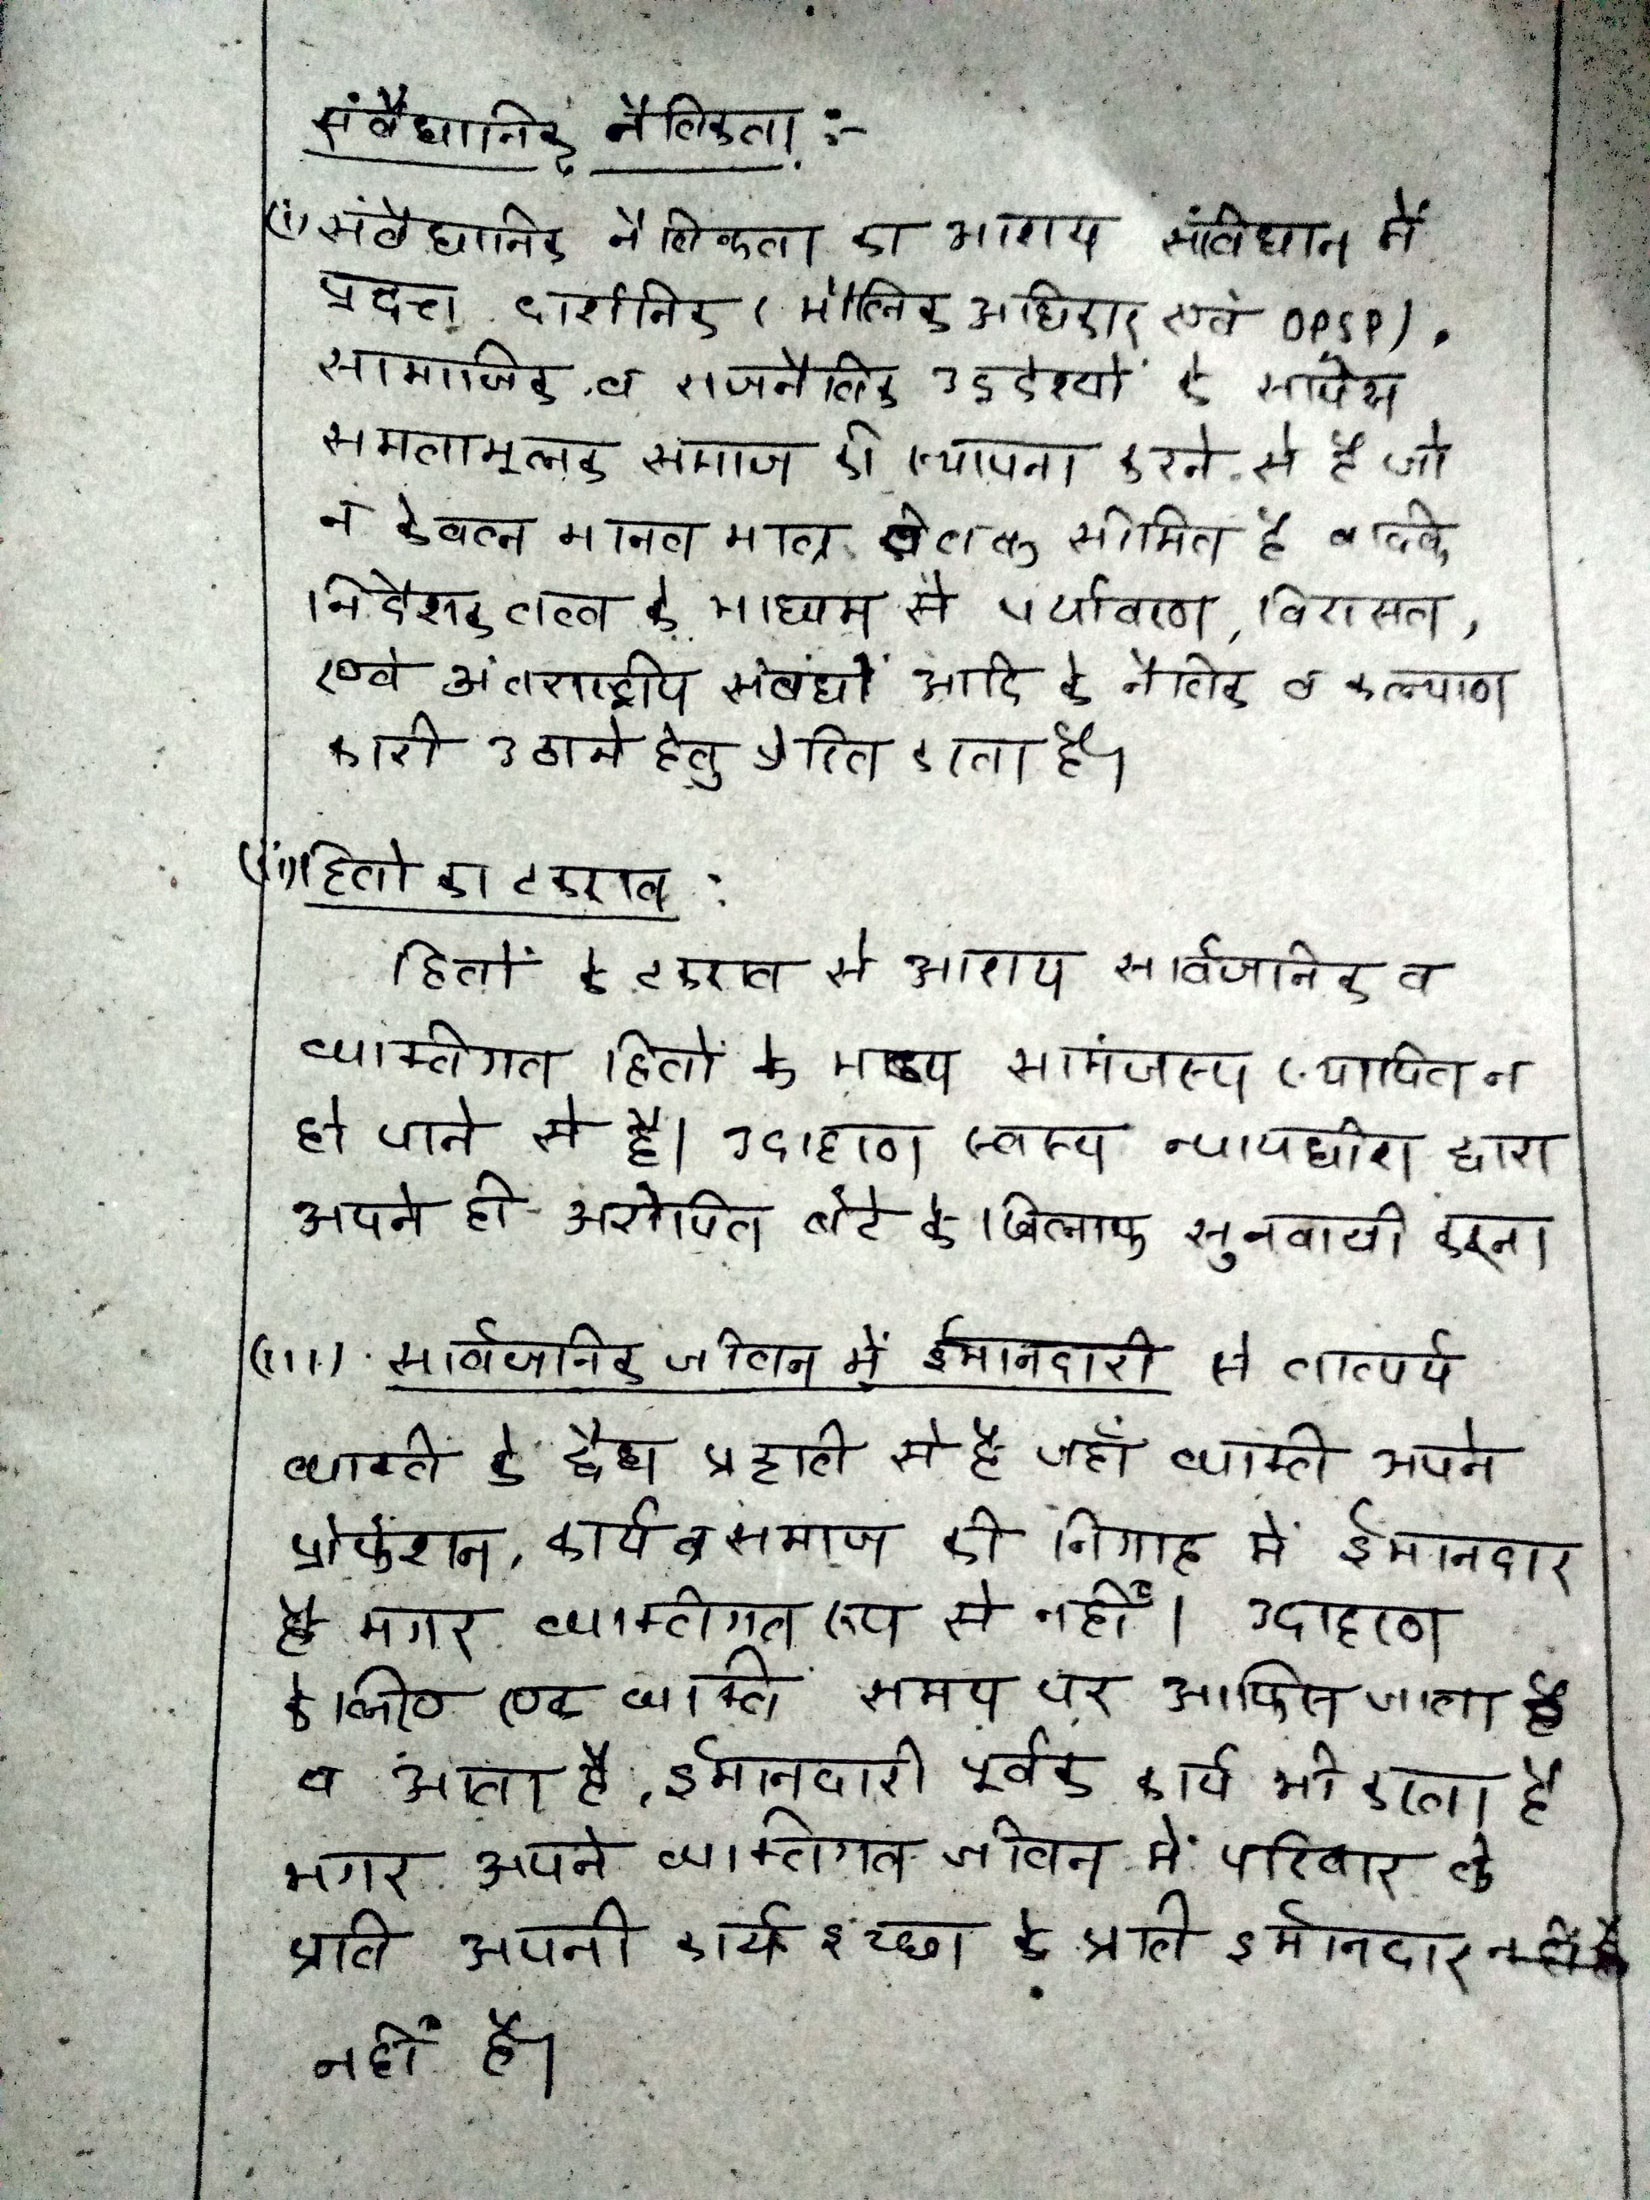 संवैधानिक नैतिकता :-
(i) संवैधानिक नैतिकता का आशय संविधान में
प्रदत्त दार्शनिक (मौलिक अधिकार एवं DPSP),
सामाजिक व राजनैतिक उद्देश्यों के सापेक्ष
समतामूलक समाज की स्थापना करने से है जो
न केवल मानव मात्र तक सीमित है बल्कि
निर्देशक तत्व के माध्यम से पर्यावरण, विरासत,
एवं अंतराष्ट्रीय संबंधों आदि के नैतिक व कल्याण
कारी उठाने हेतु प्रेरित करता है।
(ii) हितो का टकराव :
हितों के टकराव से आशय सार्वजनिक व
व्यक्तिगत हितों के मध्य सामंजस्य स्थापित न
हो पाने से है। उदाहरण स्वरूप न्यायधीश द्वारा
अपने ही अरोपित बेटे के खिलाफ सुनवायी करना
(iii) सार्वजनिक जीवन में ईमानदारी से तात्पर्य
व्यक्ति के द्वैध प्रकृति से है जहाँ व्यक्ति अपने
प्रोफेशन, कार्य व समाज की निगाह में ईमानदार
है मगर व्यक्तिगत रूप से नहीं। उदाहरण
के लिए एक व्यक्ति समय पर आफिस जाता है
व आता है, ईमानदारी पूर्वक कार्य भी करता है
मगर अपने व्यक्तिगत जीवन में परिवार के
प्रति अपनी कार्य इच्छा के प्रति ईमानदार
नहीं है।